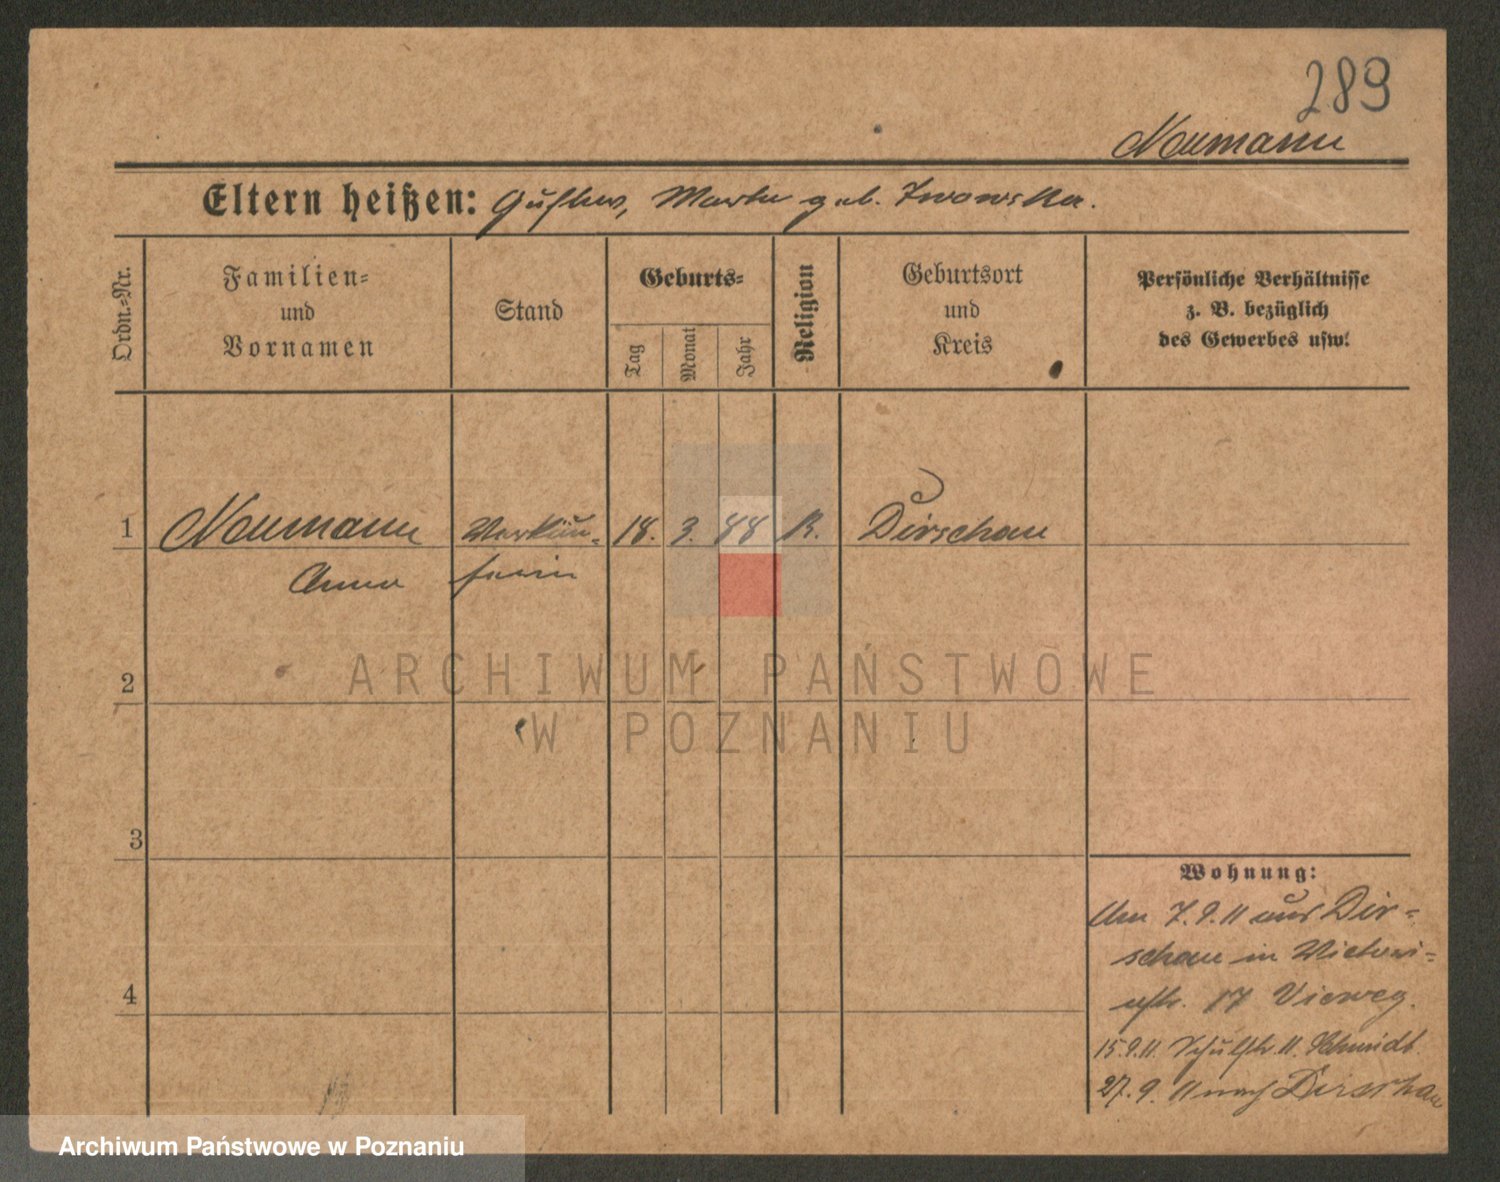 289
Neumann
Eltern heißen: Gustav, Martha geb. Iwowska.
Ordn.-Nr.
Familien-
und
Vornamen
Stand
Geburts-
Tag
Monat
Jahr
Religion
Geburtsort
und
Kreis
Persönliche Verhältnisse
z. B. bezüglich
des Gewerbes usw.
1 Neumann Verkäu- 18. 3. 88 K. Dirschau
Anna ferin
2
ARCHIWUM PAŃSTWOWE
W POZNANIU
3
Wohnung:
Am 7.9.11 aus Dir-
schau in
17 Vieweg.
4
15.9.11. Schulstr. 11. Schmidt
27.9.11 nach Dirschau
Archiwum Państwowe w Poznaniu